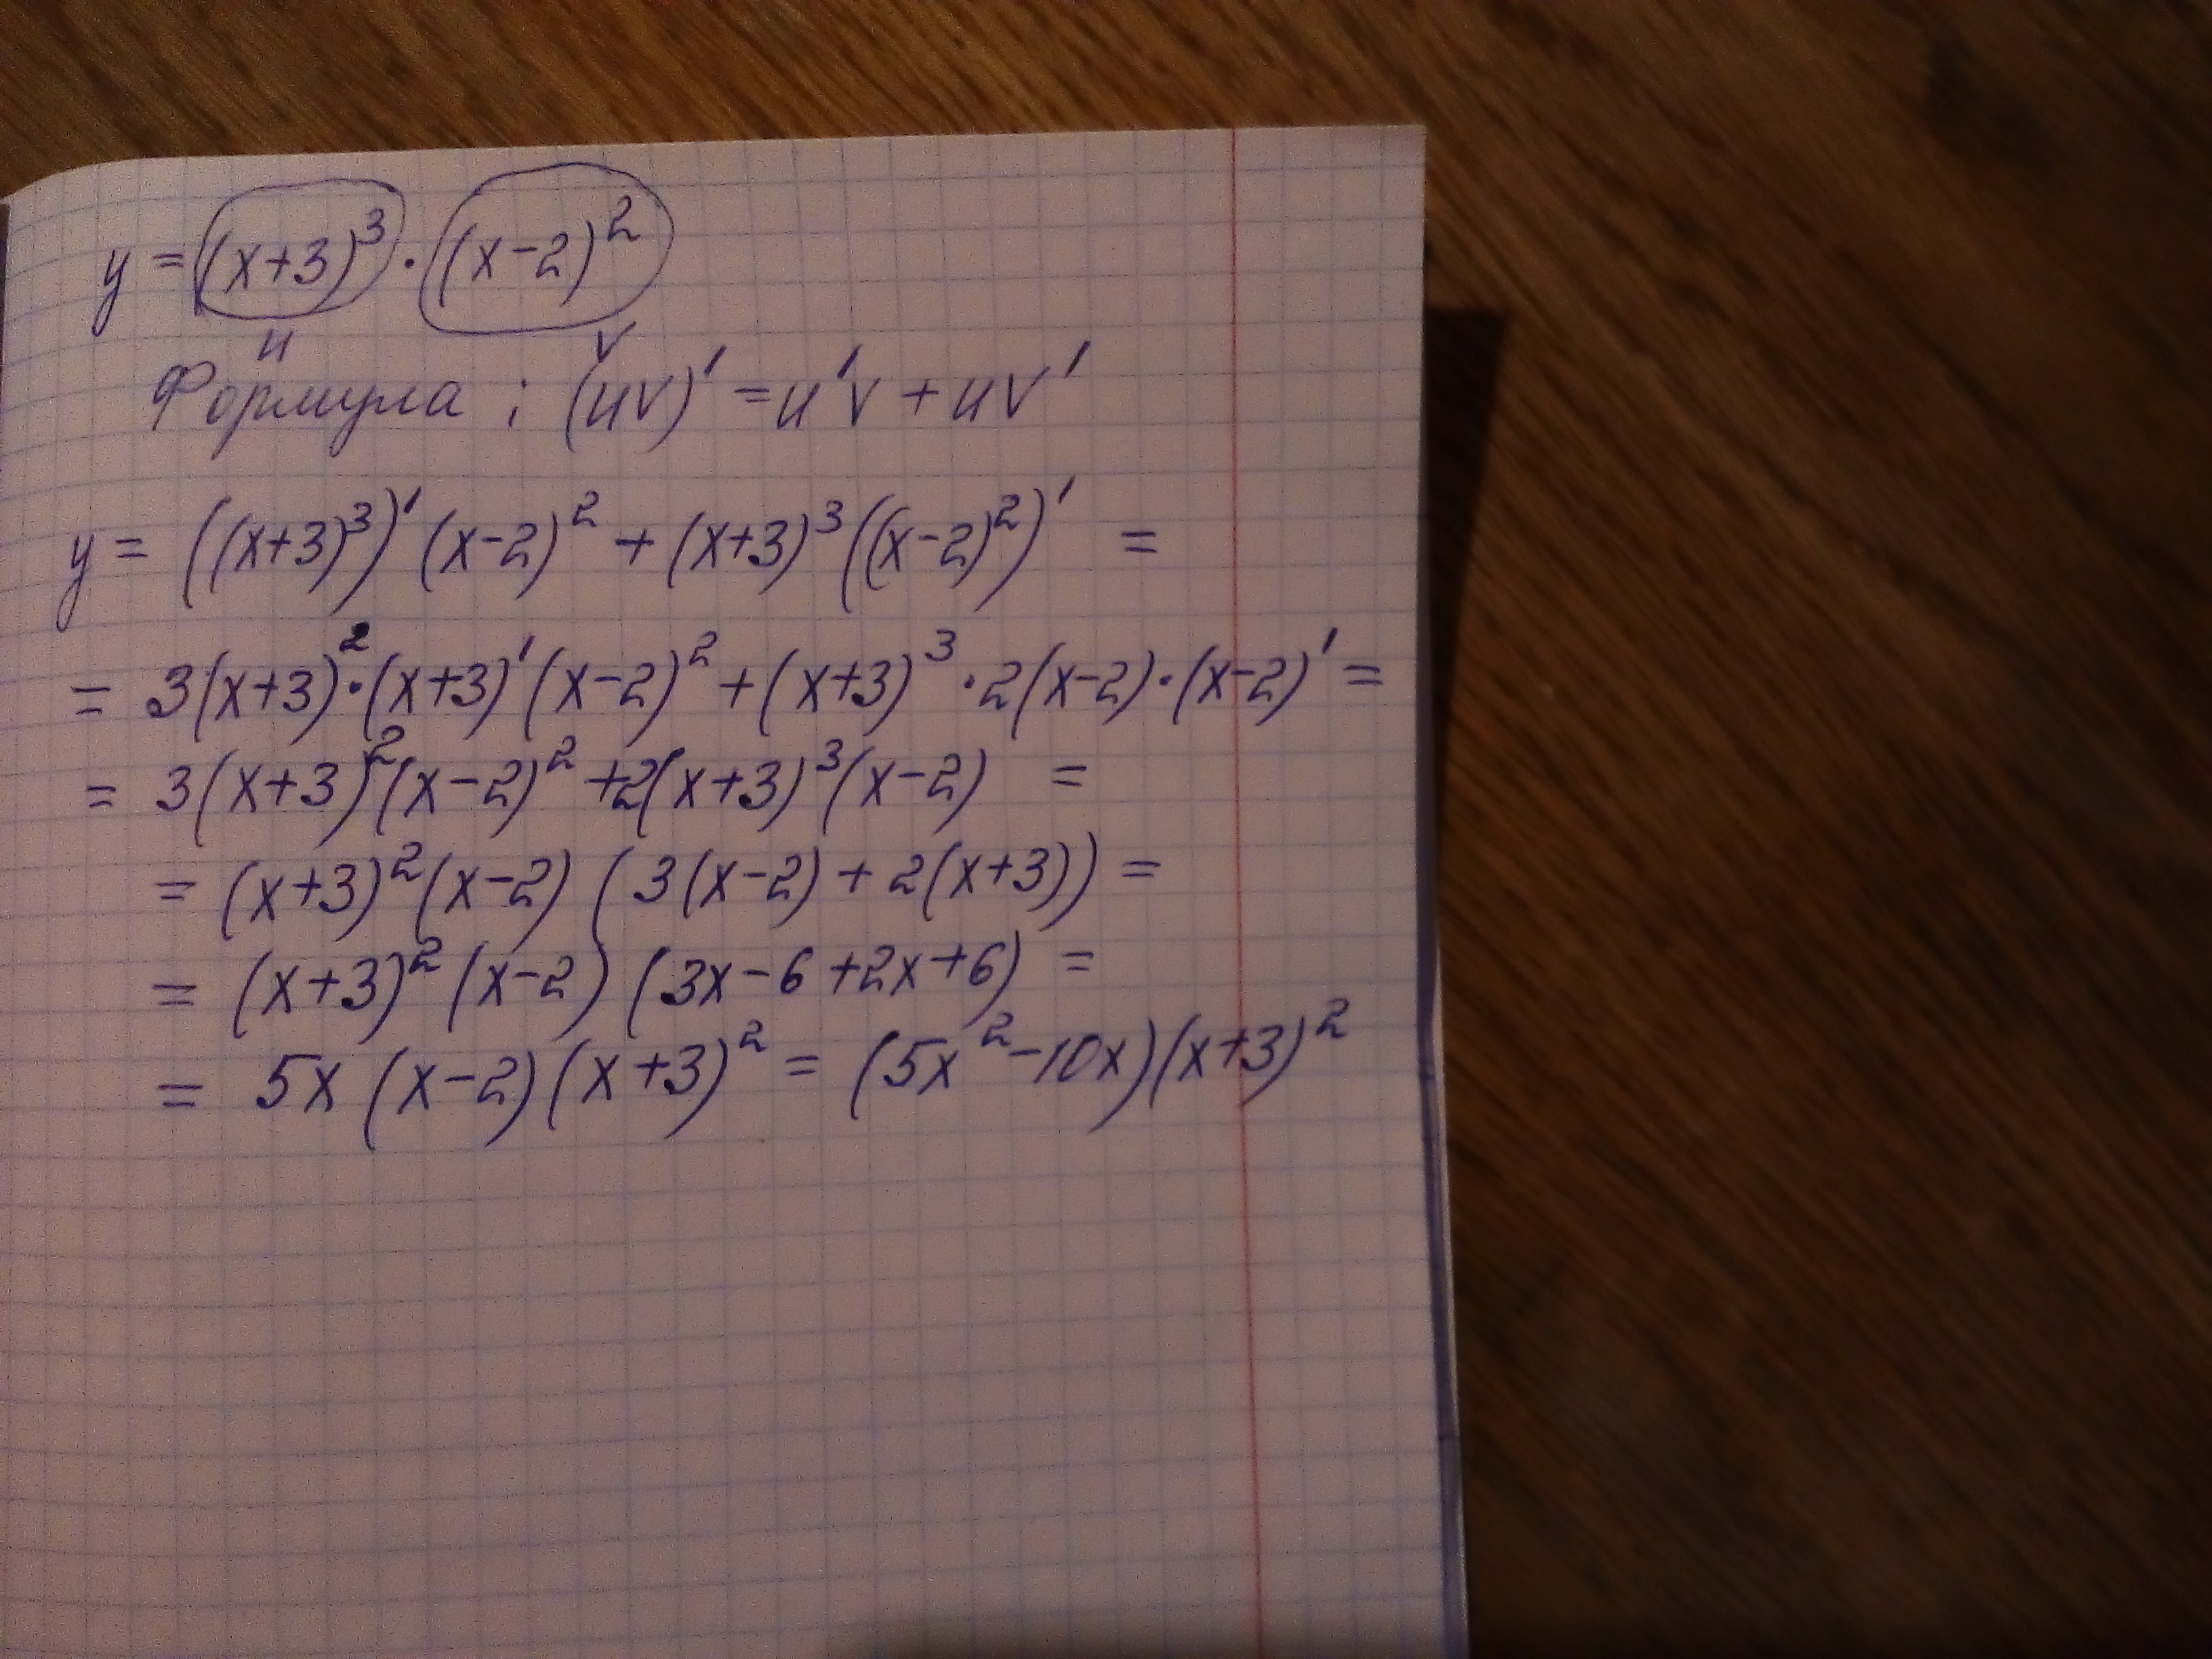 y = (x+3)³ · (x-2)²
u v
Формула : (uv)' = u'v + uv'
y = ((x+3)³)' (x-2)² + (x+3)³ ((x-2)²)' =
= 3(x+3)² · (x+3)' (x-2)² + (x+3)³ · 2(x-2) · (x-2)' =
= 3(x+3)² (x-2)² + 2(x+3)³ (x-2) =
= (x+3)² (x-2) (3(x-2) + 2(x+3)) =
= (x+3)² (x-2) (3x-6+2x+6) =
= 5x (x-2) (x+3)² = (5x²-10x)(x+3)²